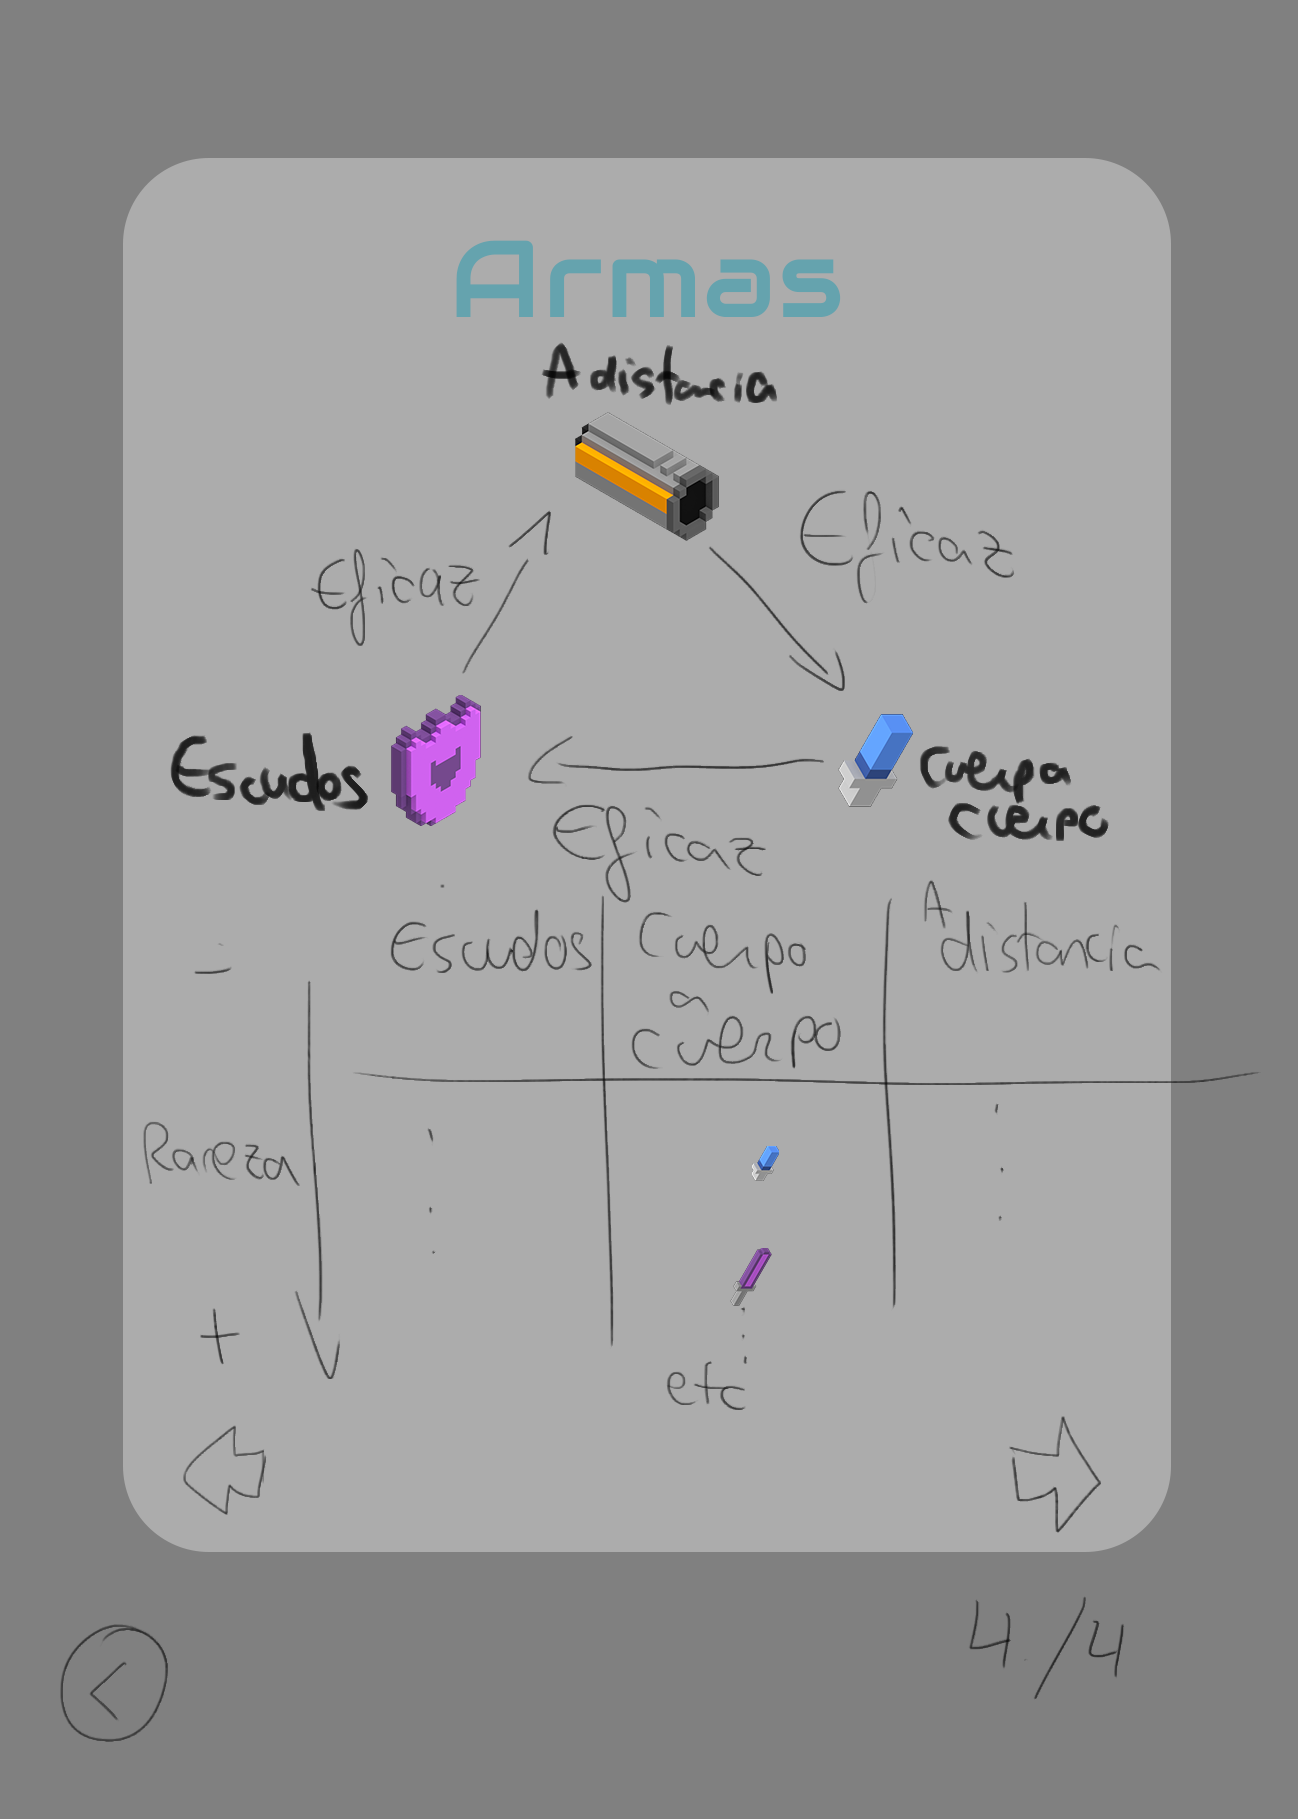 Armas
A distancia
Eficaz
Eficaz
Escudos
Cuerpo
cuerpo
Eficaz
-
Escudos
Cuerpo
a
cuerpo
A
distancia
Rareza
+
etc
4/4